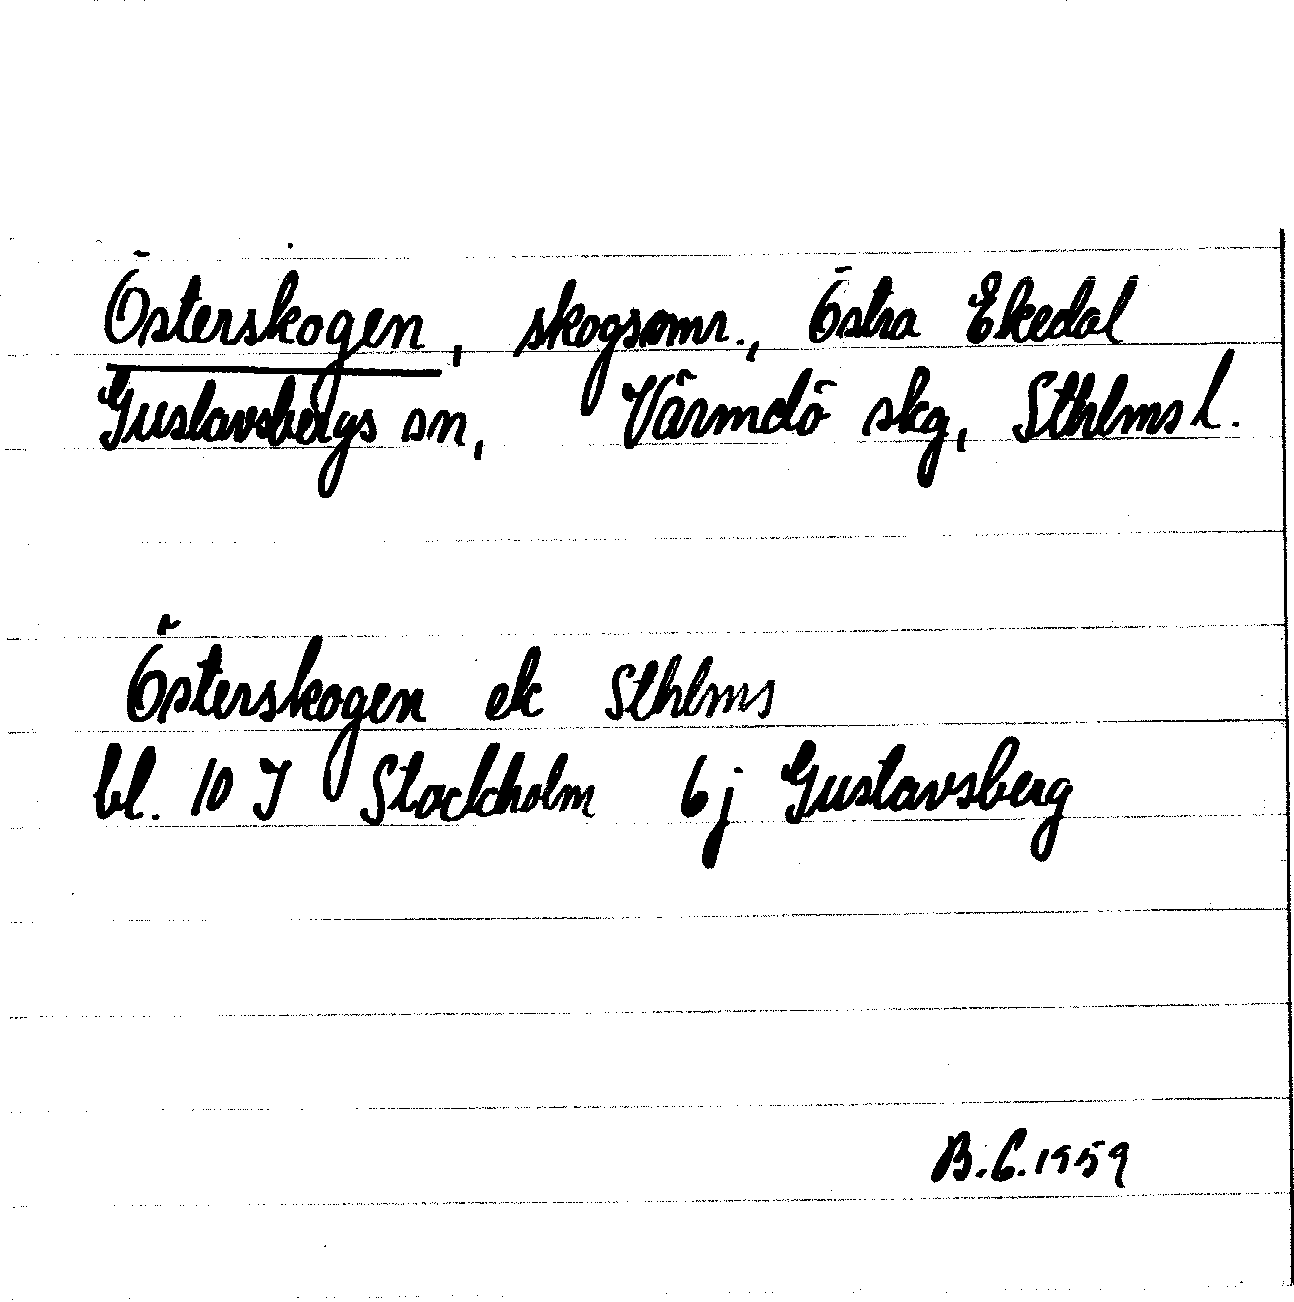 Österskogen, skogsomr., Östra Ekedal
Gustavsbergs sn, Värmdö skg, Sthlms l.
Österskogen ek Sthlms
bl. 10 J Stockholm 6j Gustavsberg
B.G. 1959